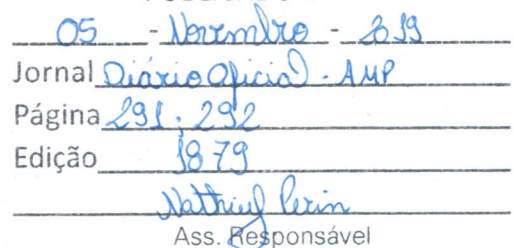 05 - Novembro - 2019
Jornal Diário Oficial - AMP
Página 291, 292
Edição 1879
Ass. Responsável